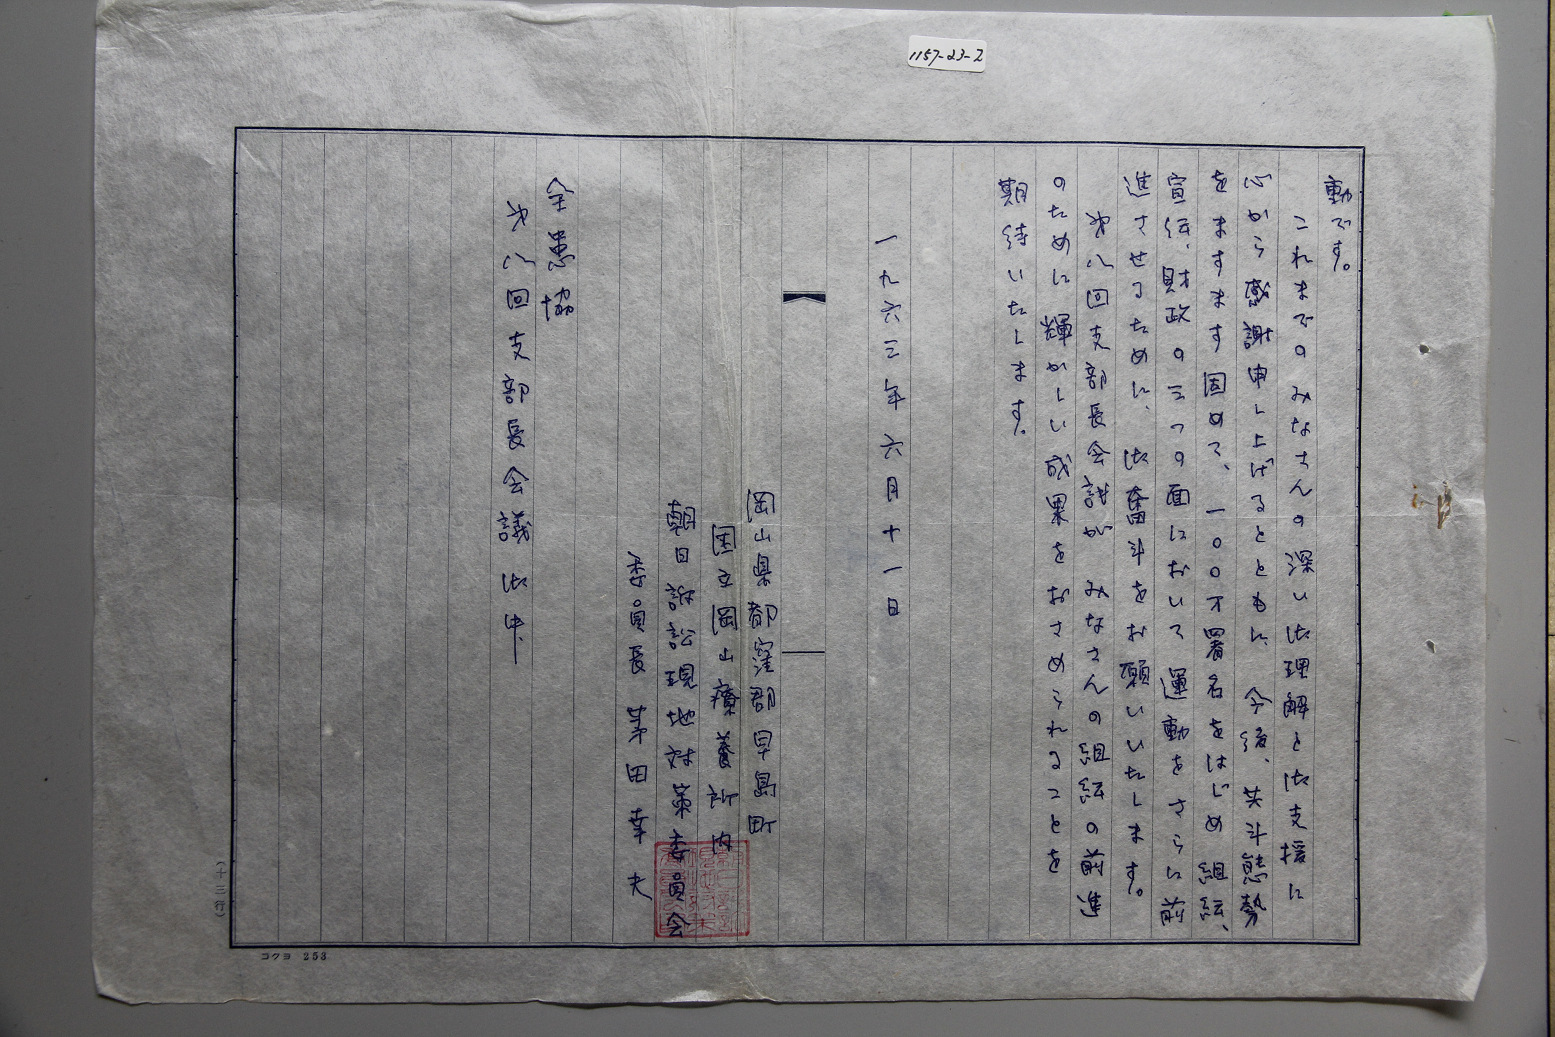 1157-23-2
動です。
これまでのみなさんの深い御理解と御支援に
心から感謝申し上げるとともに、今後、共斗態勢
をますます固めて、一〇〇万署名をはじめ組織、
宣伝、財政の三つの面において運動をさらに前
進させるために、御奮斗をお願いいたします。
第八回支部長会議が みなさんの組織の前進
のために輝かしい成果をおさめられることを
期待いたします。
一九六三年六月十一日
岡山県都窪郡早島町
国立岡山療養所内
朝日訴訟現地対策委員会
委員長 田幸夫
全患協
第八回支部長会議 御中
(十三行)
コクヨ 253